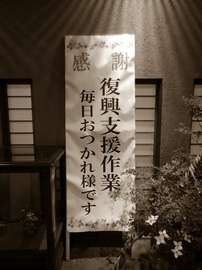 感謝
復興支援作業
毎日おつかれ様です